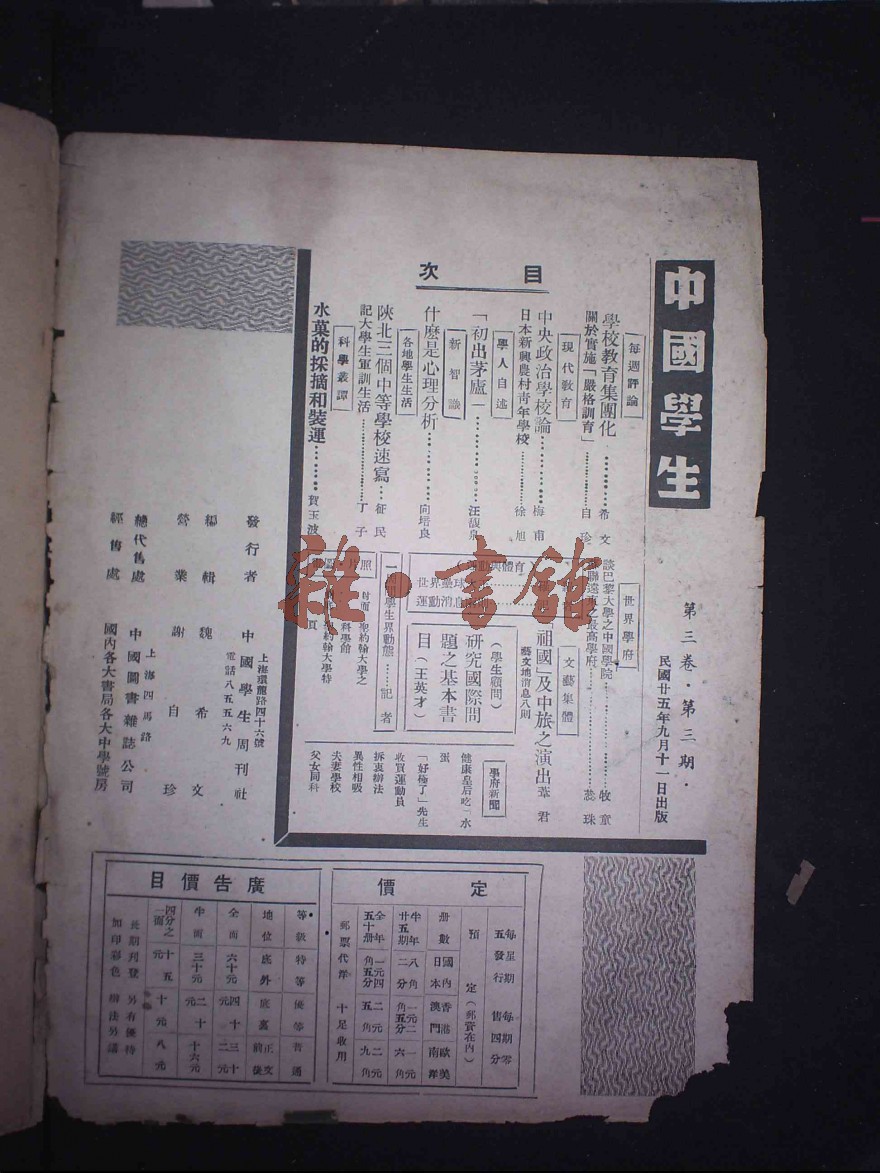 中國學生
第三卷・第三期・
民國廿五年九月十一日出版
目次
每週評論
學校教育集團化………希文
關於實施「嚴格訓育」………自珍
現代教育
中央政治學校論………梅甫
日本新興農村青年學校………徐旭
學人自述
「初出茅廬」………汪馥泉
新智識
什麽是心理分析………向培良
各地學生生活
陝北三個中等學校速寫…征民
記大學生軍訓生活………丁子
科學叢譯
水菓的採摘和裝運………賀玉波
世界學府
談巴黎大學之中國學院………牧童
最高學府………蕊珠
文藝集體
祖國」及中旅之演出 葦君
藝文地消息八則
(學生顧問)
研究國際問
題之基本書
目(王英才)
體育
世界壘球
運動消息
學生界動態……記者
照
封面 聖約翰大學之
科學館
聖約翰大學特
頁
學府新聞
健康皇后吃「水
蛋
「好極了」先生
收買運動員
拆衷辦法
異性相吸
夫妻學校
父女同科
發行者 中國學生周刊社
上海環龍路四十六號
電話八五五六九
編輯 魏希文
營業 謝自珍
總代售處 中國圖書雜誌公司
上海四馬路
經售處 國內各大書局各大中學號房
定價
每星期五發行 每期零售四分
預定(郵資在內)
冊數 國內日本 香港澳門 歐美南洋
半年廿五期 八角二分 一元二角五分 一元六角
全年五十冊 一元四角五分 二元五角 二元九角
郵票代洋 十足收用
廣告價目
等級 特等 優等 普通
地位 底外 底裏 正文前後
全面 六十元 四十元 三十二元
半面 三十元 二十元 十六元
四分之一面 十五元 十元 八元
長期刊登 另有優待
加印彩色 辦法另議
雜・書館